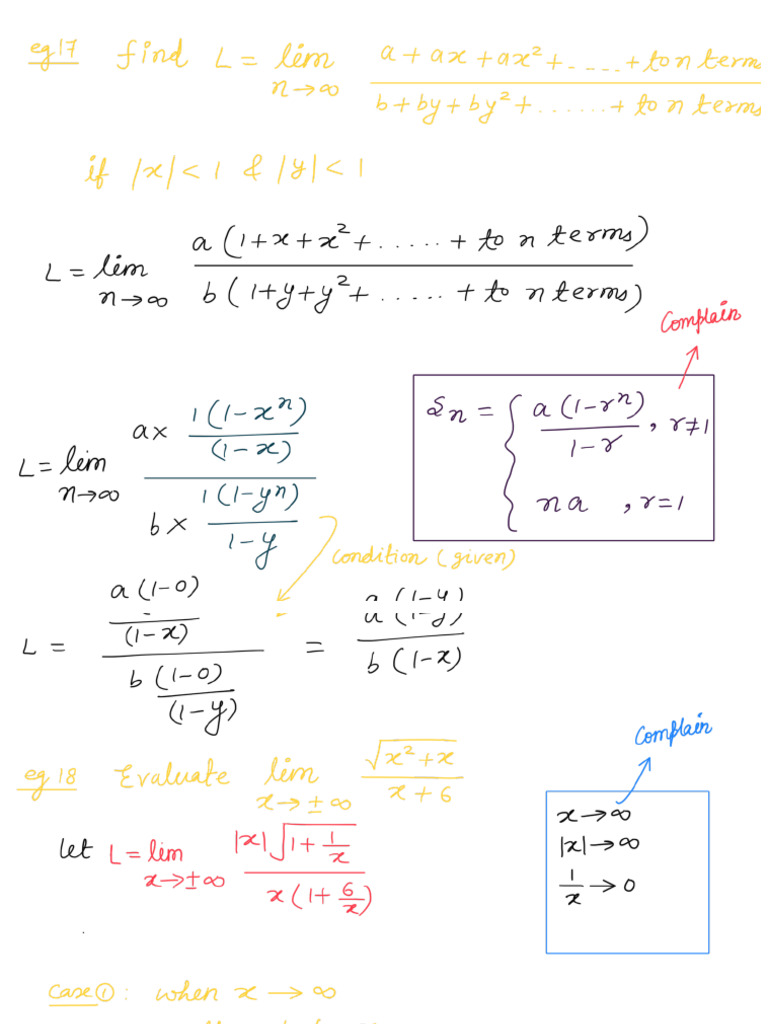 eg 17 find L = lim n→∞ (a + ax + ax² + ..... + to n terms) / (b + by + by² + ...... + to n terms)
if |x| < 1 & |y| < 1
L = lim n→∞ a (1+x+x²+ ..... + to n terms) / b (1+y+y²+ ..... + to n terms)
Complain
Sn = { a (1-rⁿ) / 1-r , r≠1
na , r=1
L = lim n→∞ (a × 1(1-xⁿ)/(1-x)) / (b × 1(1-yⁿ)/1-y)
Condition (given)
L = (a (1-0)/(1-x)) / (b (1-0)/(1-y)) = a (1-y) / b (1-x)
Complain
eg 18 Evaluate lim x→±∞ √(x²+x) / x+6
x→∞
|x|→∞
1/x → 0
let L = lim x→±∞ |x|√(1+1/x) / x(1+6/x)
Case ①: when x → ∞